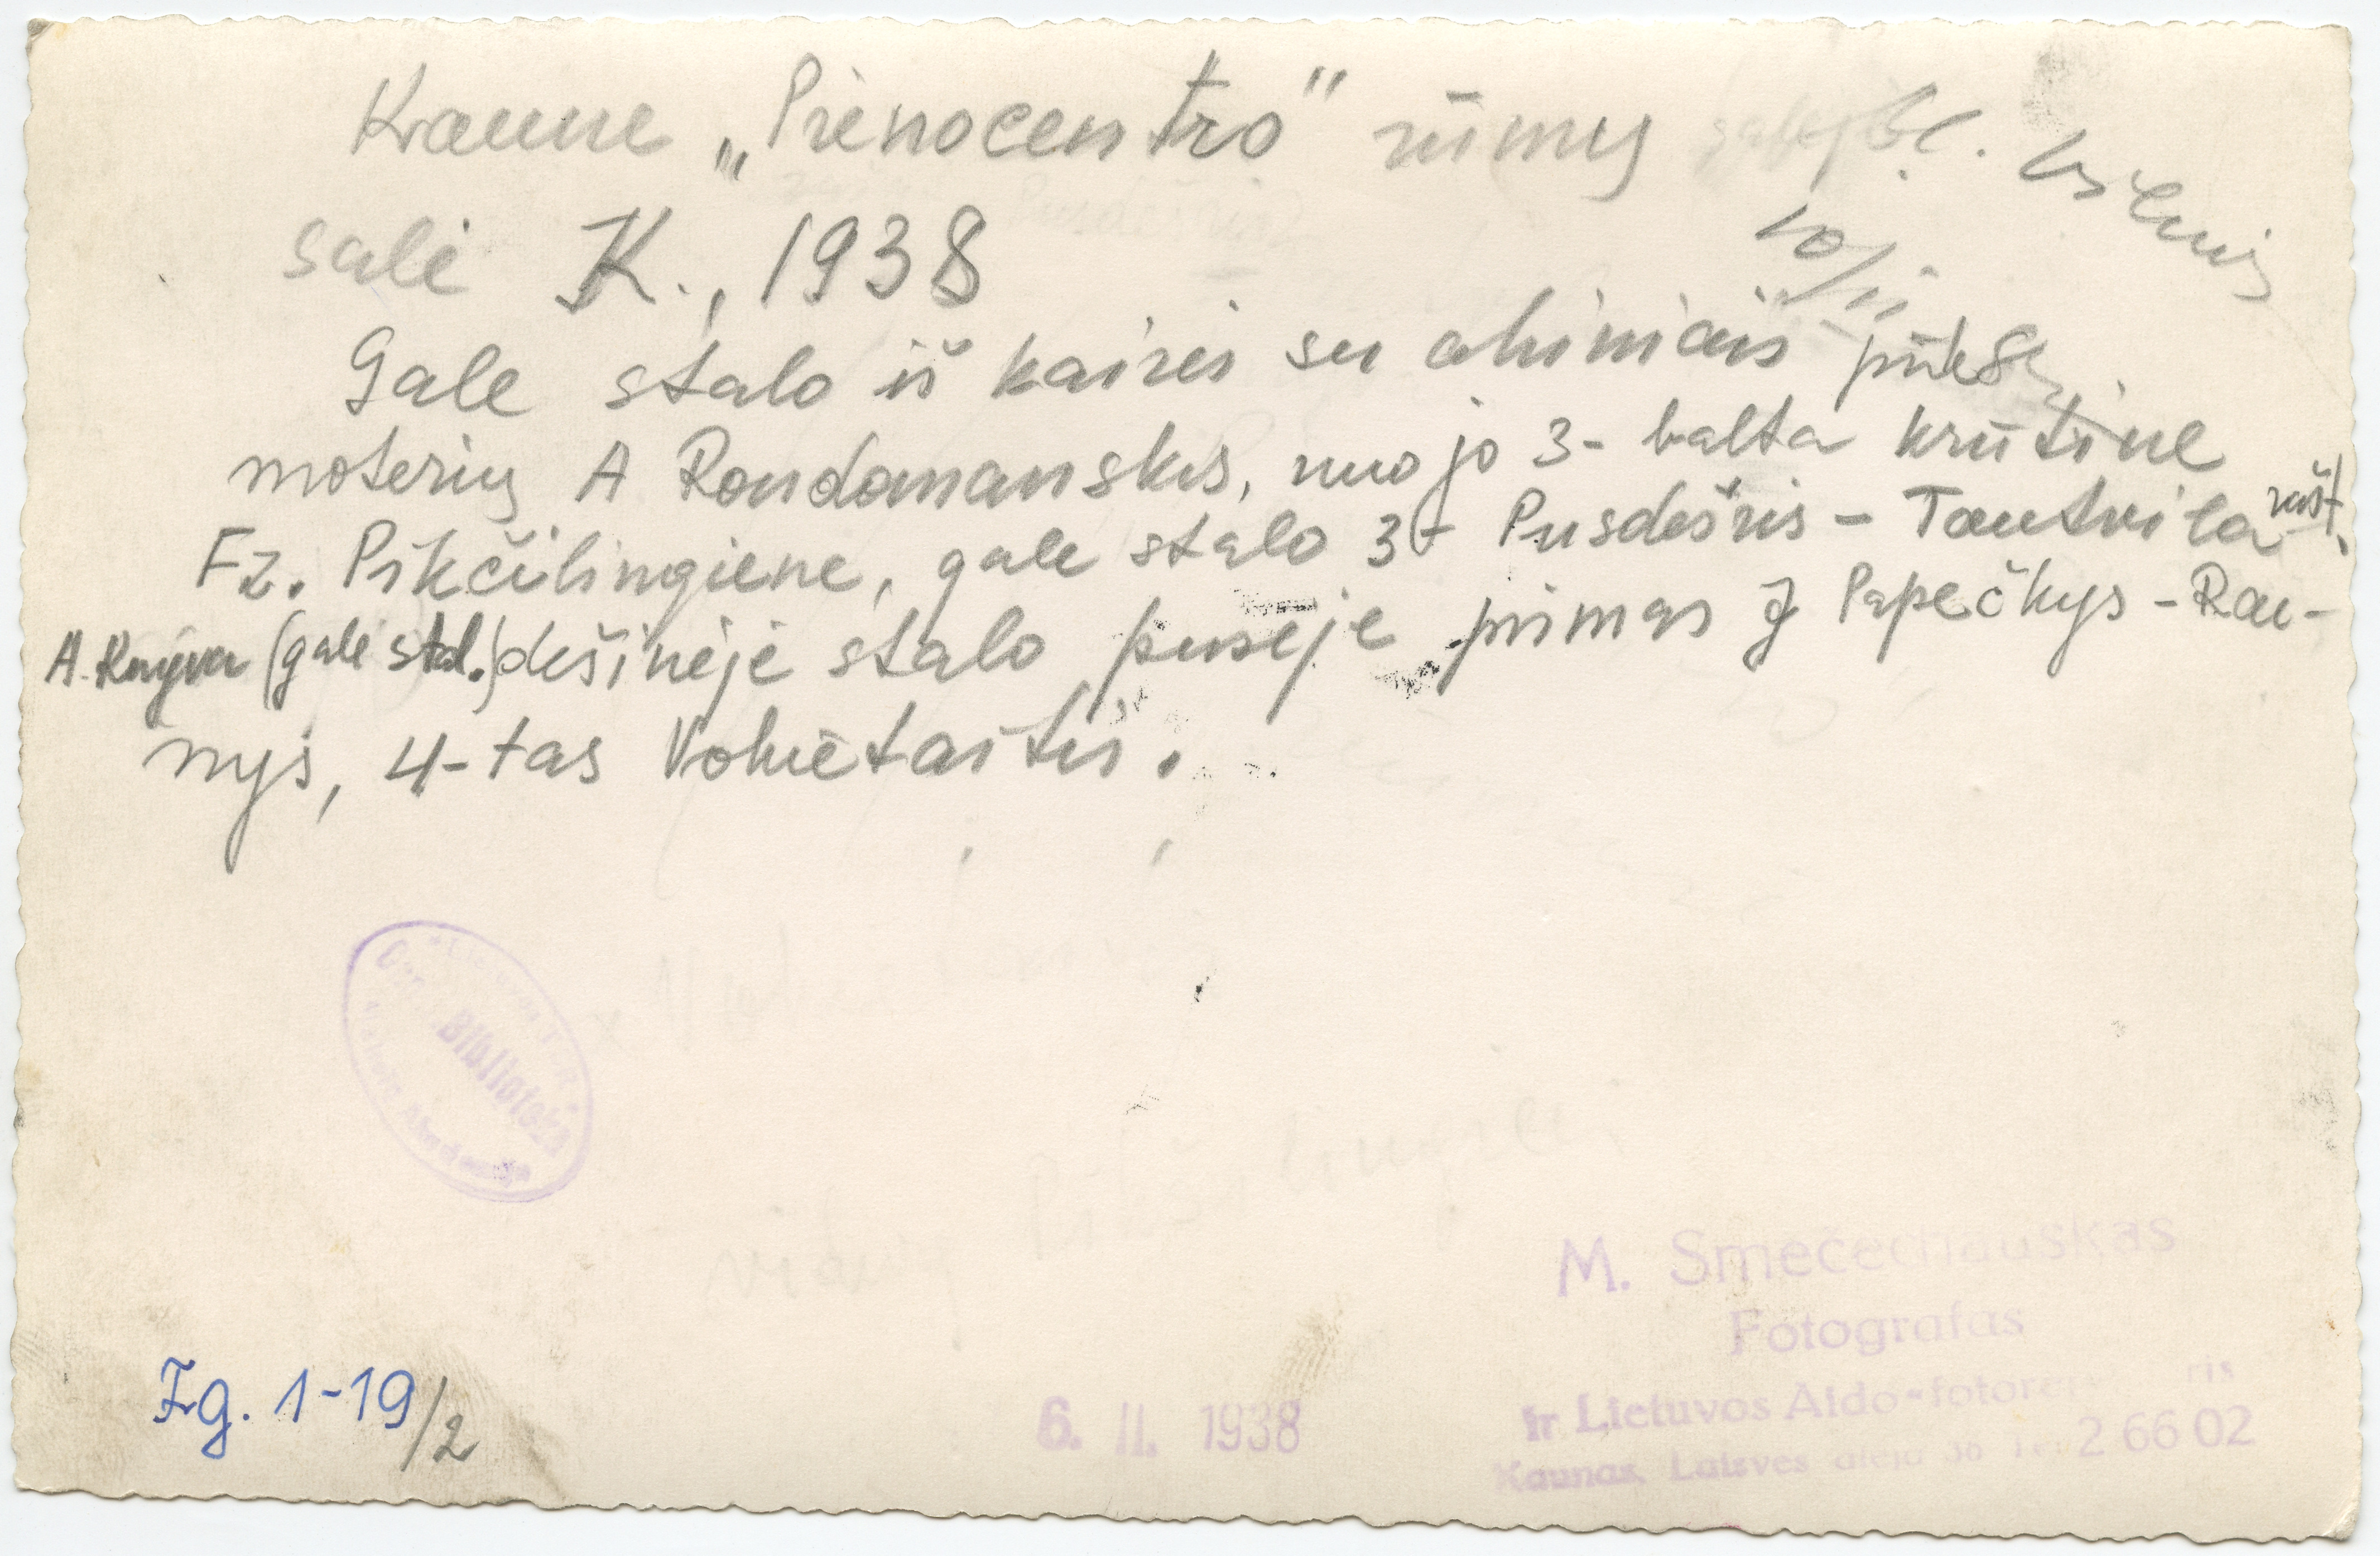 Kaune „Pienocentro" rūmų
salė K., 1938
10/II
Gale stalo iš kairės su akiniais prieš
moterių A Rondomanskis, nuo jo 3- balta krūtine
Fz. Pikčilingienė, gale stalo 3- Pusdešris - Tautvila rašt.
A. Knyva (gale stal.) dešinėje stalo pusėje pirmas J Papečkys - Rau-
nys, 4-tas Vokietaitis.
Biblioteka
M. Smečechauskas
Fotografas
ir Lietuvos Aido-
Kaunas, Laisvės alėja 36 Tel 2 66 02
6. II. 1938
Fg. 1-19/2